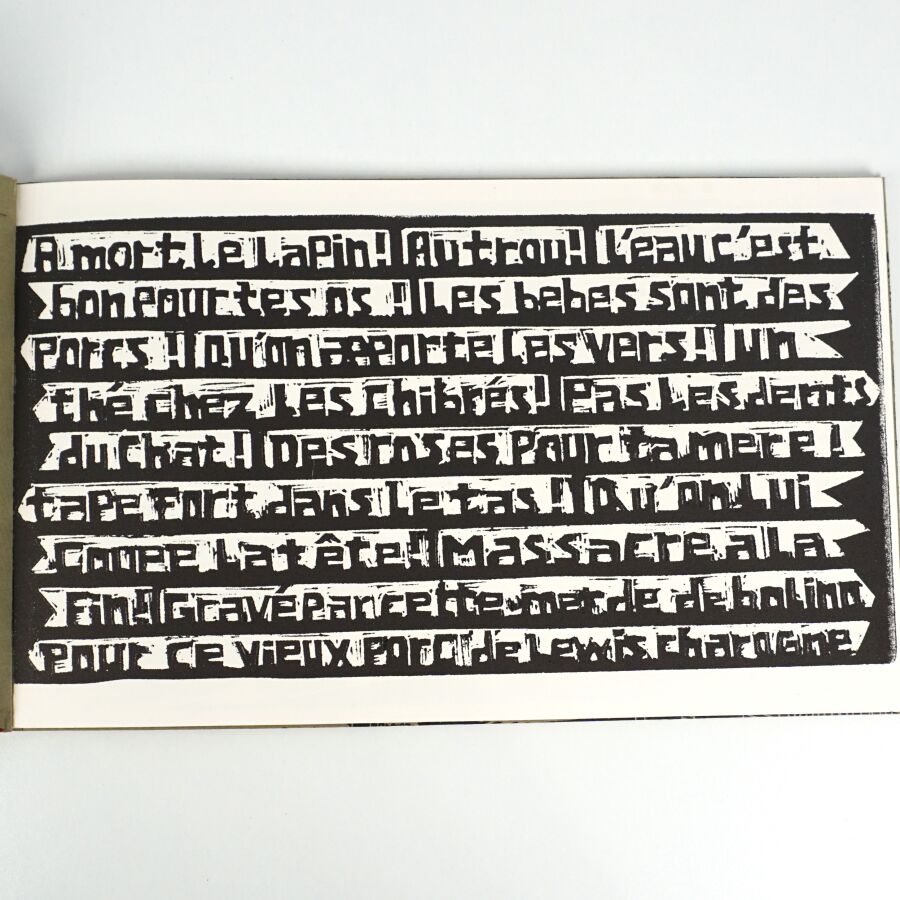 A mort Le Lapin! Au trou! L'eau c'est
bon pour tes os ! Les bebes sont des
Porcs ! Qu'on apporte Les vers! Un
thé chez Les Chibrés! Pas Les dents
du Chat! Des roses Pour ta mere !
tape Fort dans Le tas ! Qu'on Lui
Coupe La tête! Massacre a La
Fin! Gravé Par cette merde de bolino
Pour ce vieux Porc de Lewis charogne